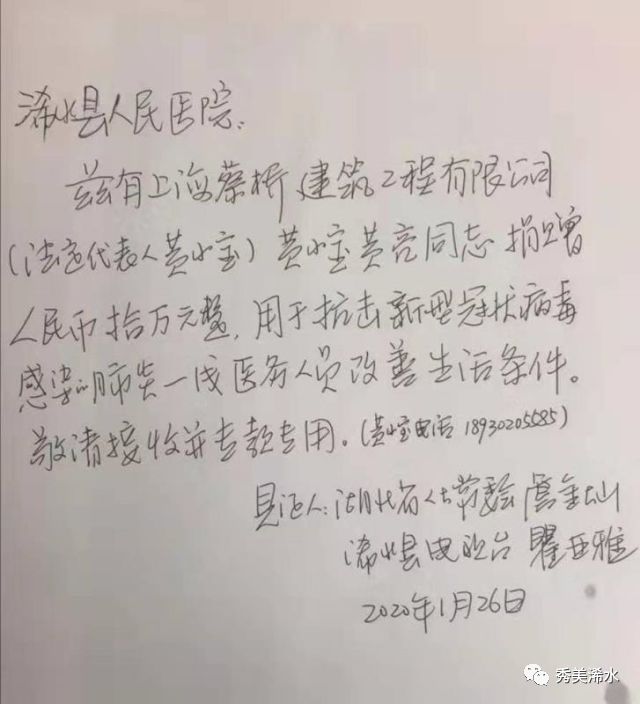 浠水县人民医院:
兹有上海蔡桥建筑工程有限公司
(法定代表人黄小宝)黄小宝黄亮同志捐赠
人民币拾万元整,用于抗击新型冠状病毒
感染的肺炎一线医务人员改善生活条件。
敬请接收并专款专用。(黄小宝电话18930205585)
见证人:湖北省人大常委会虞金灿
浠水县电视台 瞿亚雅
2020年1月26日
秀美浠水